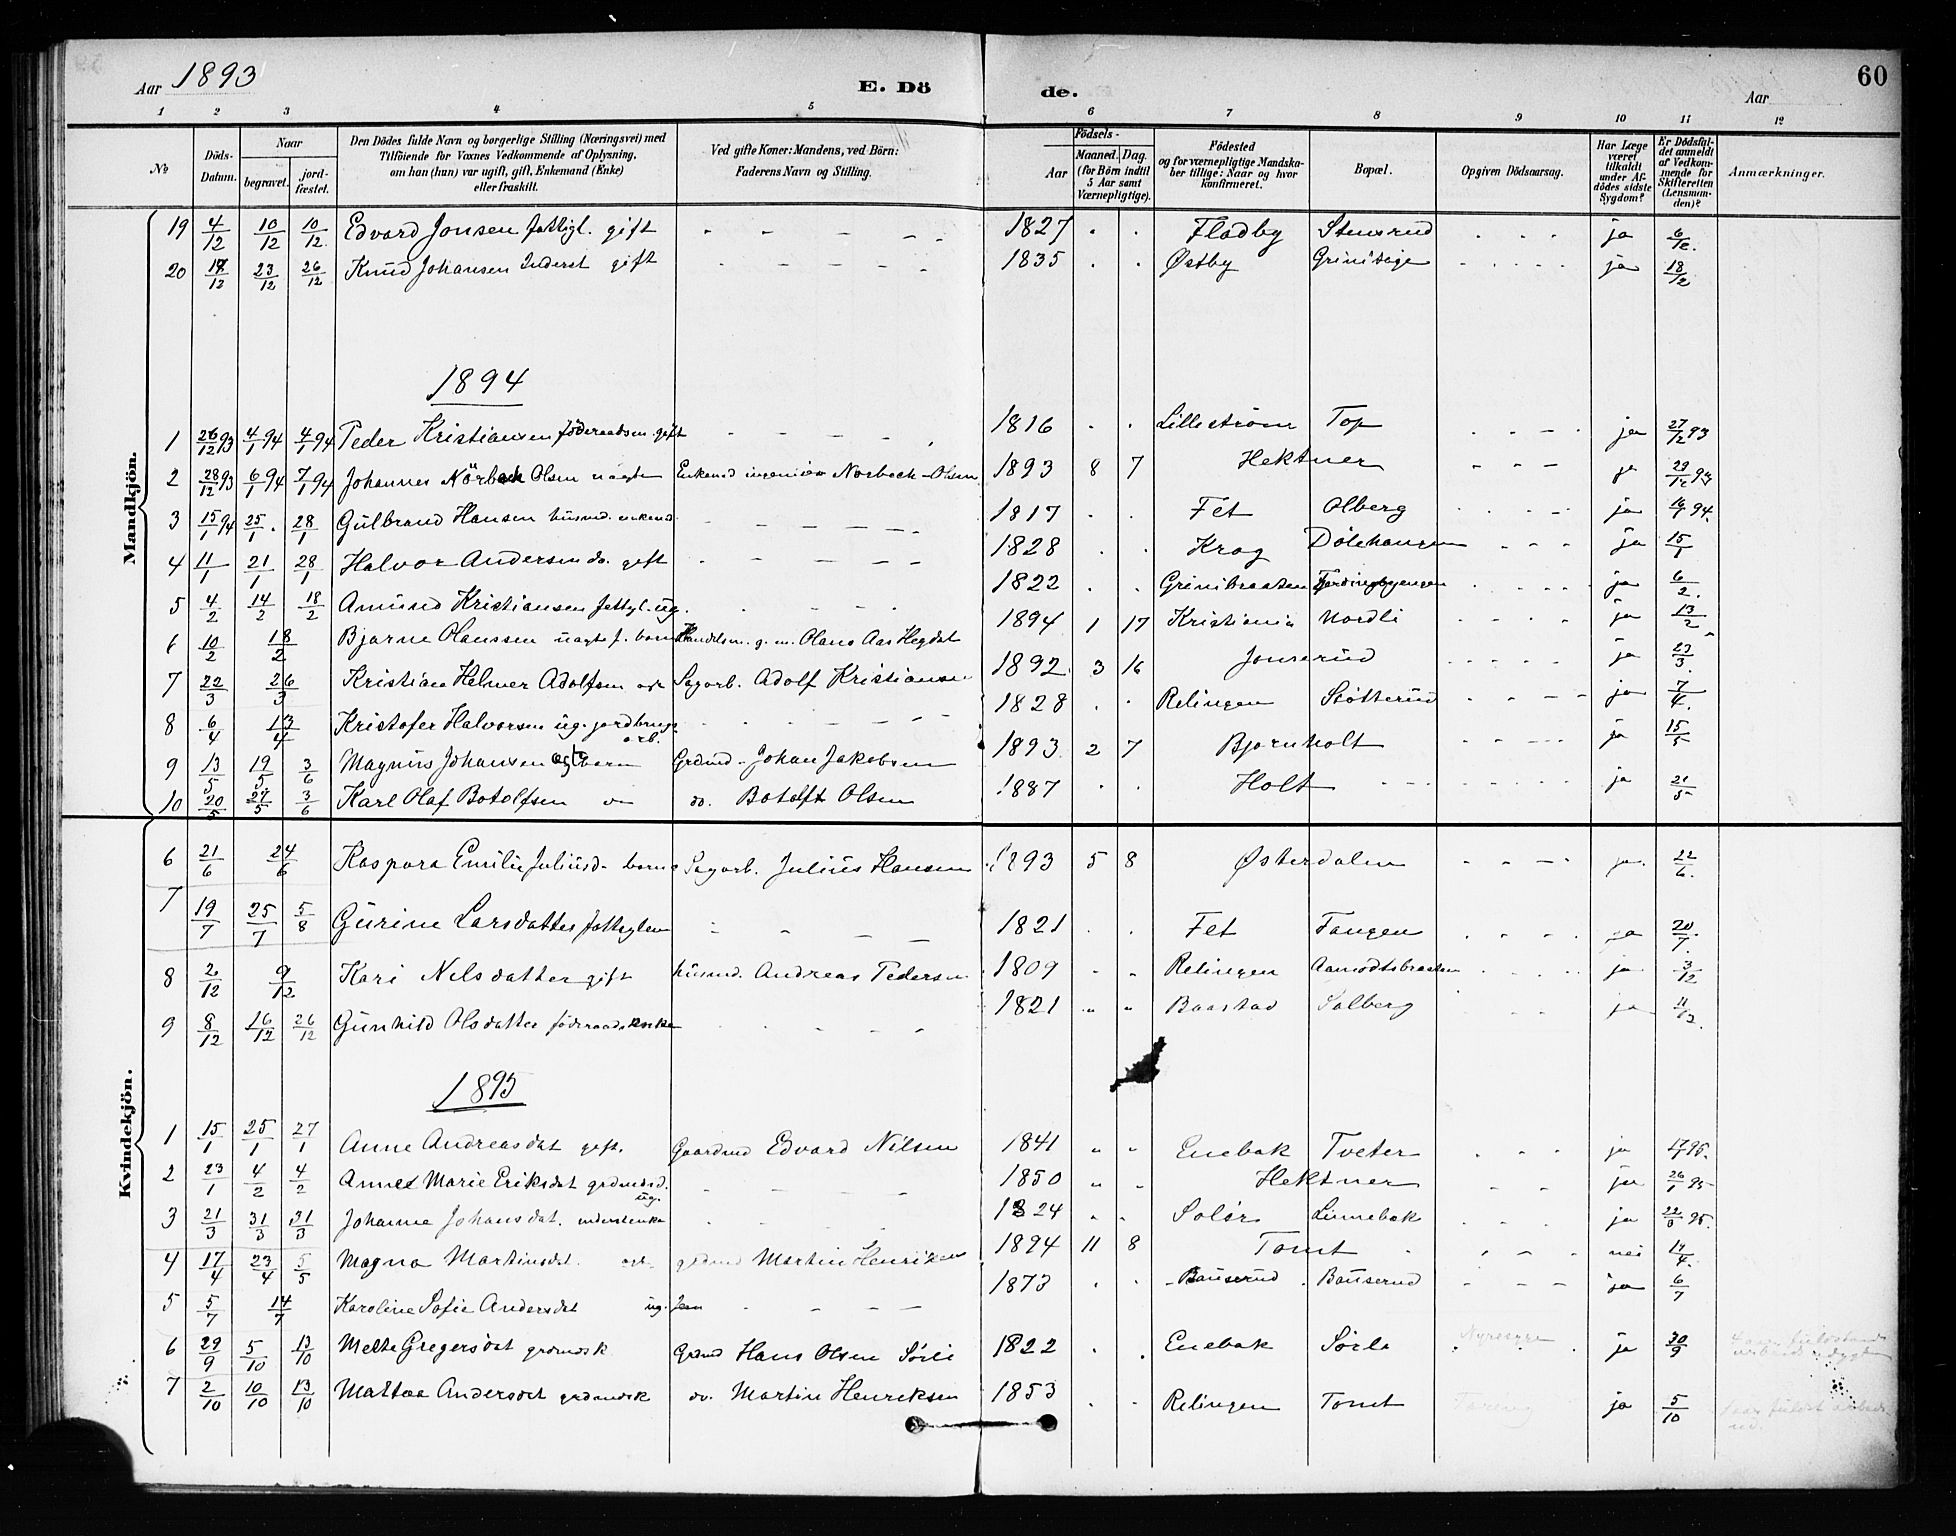 Aar 1893 E. Döde. Aar 60
1 2 3 4 5 6 7 8 9 10 11 12
No Döds-Datum. Naar begravet. jordfæstet. Den Dödes fulde Navn og borgerlige Stilling (Næringsvei) med Tilföiende for Voxnes Vedkommende af Oplysning, om han (hun) var ugift, gift, Enkemand (Enke) eller fraskilt. Ved gifte Koner: Mandens, ved Börn: Faderens Navn og Stilling. Födsels- Aar Maaned. Dag. (for Börn indtil 5 Aar samt Værnepligtige). Födested og for værnepligtige Mandskaber tillige: Naar og hvor konfirmeret. Bopæl. Opgiven Dödsaarsag. Har Læge været tilkaldt under Afdödes sidste Sygdom? Er Dödsfaldet anmeldt af Vedkommende for Skifteretten (Lensmanden)? Anmærkninger.
Mandkjön.
19 4/12 10/12 10/12 Edvard Jonsen fattigl. gift - - - - - 1827 . . Fladby Stensrud . . . ja 6/12.
20 17/12 23/12 26/12 Knud Johansen Inderst gift - - - - - 1835 . . Østby - . . . . ja 18/12
1894
1 26/12 93 4/1 94 4/1 94 Peder Kristiansen föderaadsm. gift - - - - 1816 . . Lilleström Top . . - . ja 27/12 93
2 28/12 93 6/1 94 7/1 94 Johannes Nörbech Olsen uægte Enkemd ingeniör Norbech-Olsen 1893 8 7 Hektner - - - ja 29/12 93
3 15/1 94 25/1 . 28/1 Gulbrand Hansen husmd. enkemd. - - - - 1817 . . Fet Olberg . . . . ja 16/1 94.
4 11/1 21/1 28/1 Halvor Andersen do. gift - - - - 1828 . . Krog Dölehaugen - - - ja 15/1
5 4/2 14/2 18/2 Amund Kristiansen fattigl. ug. - - - 1822 . . Grinibraaten . . . . ja 6/2.
6 10/2 18/2 Bjarne Olanssen uagte f. barn Handelsm. g. m. Olans Aas Hegdal 1894 1 17 Kristiania Nordli . . . . ja 13/2
7 22/3 26/3 Kristian Helmer Adolfsen Sagarb. Adolf Kristiansen 1892 3 16 Jonsrud . . . . ja 23/3.
8 6/4 13/4 Kristofer Halvorsen ug. jordbrugs arb. - - - - - 1828 . . Relingen Støtterud - . . . ja 7/4.
9 13/5 19/5 3/6 Magnus Johansen ægte barn Grdmd. Johan Jakobsen 1893 2 7 Bjornholt - - - - ja 15/5
10 20/5 27/5 3/6 Karl Olaf Botolfsen do. Botolft Olsen 1887 . . Holt - - - - ja 21/5
Kvindekjön.
6 21/6 24/6 Kaspara Emilie Juliusd. barn Sagarb. Julius Hansen 1893 5 8 Østerdalen - - - - ja. 22/6.
7 19/7 25/7 5/8 Gurine Larsdatter fattiglem - - - - 1821 . . Fet Tangen . . . . ja 20/7.
8 2/12 9/12 Kari Nilsdatter gift husmd. Andreas Pedersen 1809 . . Relingen Aamodtsbraaten . . . . ja 3/12
9 8/12 16/12 26/12 Gunhild Olsdatter föderaadsenke . . . . 1821 . . Baastad Solberg . . . ja 11/12.
1895
1 15/1 25/1 27/1 Anne Andreasdat gift. Gaardmd Edvard Nilsen 1841 . . Enebak Tveter . . . ja 17/1 95.
2 23/1 4/2 4/2 Annet Marie Eriksdat grdmdsd. ug. - - - - 1850 . . Hektner . . . ja 26/1 95
3 21/3 31/3 31/3 Johanne Johansdat. inderstenke . . . . 1824 . . Solør Linnebak . . . ja 22/3 95.
4 17/4 23/4 5/5 Magna Martinsdat. grdmd Martin Henriksen 1894 11 8 Tomt . . . . nei 19/4.
5 5/7 14/7 Karoline Sofie Andersdat ug. - - - - 1873 . . Bauserud Bauserud - - - ja 6/7
6 29/9 5/10 13/10 Mette Gregersdat grdmdsk. Grdmd Hans Olsen Sörli 1822 . . Enebak Sørli Nyresyge ja 30/9
7 2/10 10/10 13/10 Mattea Andersdat grdmandsk do. Martin Henriksen 1853 . . Relingen Tomt Tæring ja 5/10